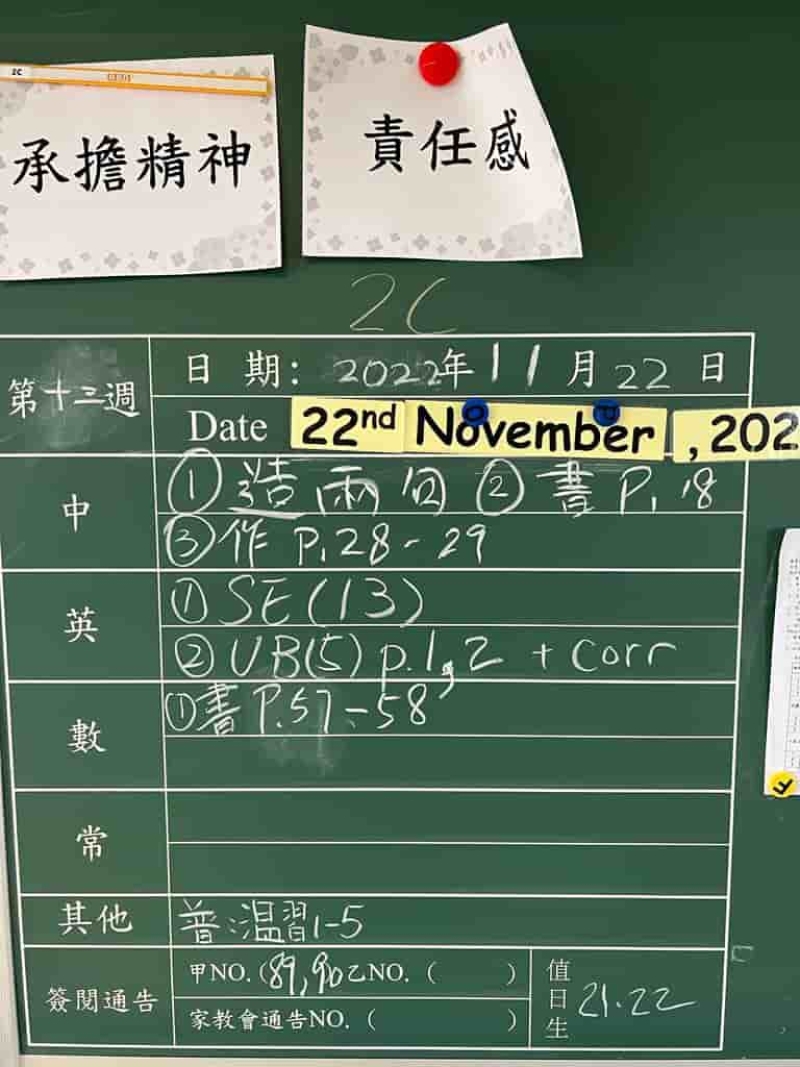 2C
承擔精神
責任感
2C
第十三週
日 期： 2022年 11月 22 日
Date 22nd November , 202
中
① 造兩句 ② 書 P.18
③ 作 P.28-29
英
① SE(13)
② UB(5) p.1,2 + corr
數
① 書 P.57-58
常
其他
普:溫習1-5
簽閱通告
甲NO.（89,90乙NO.（ ）
家教會通告NO.（ ）
值日生
21.22